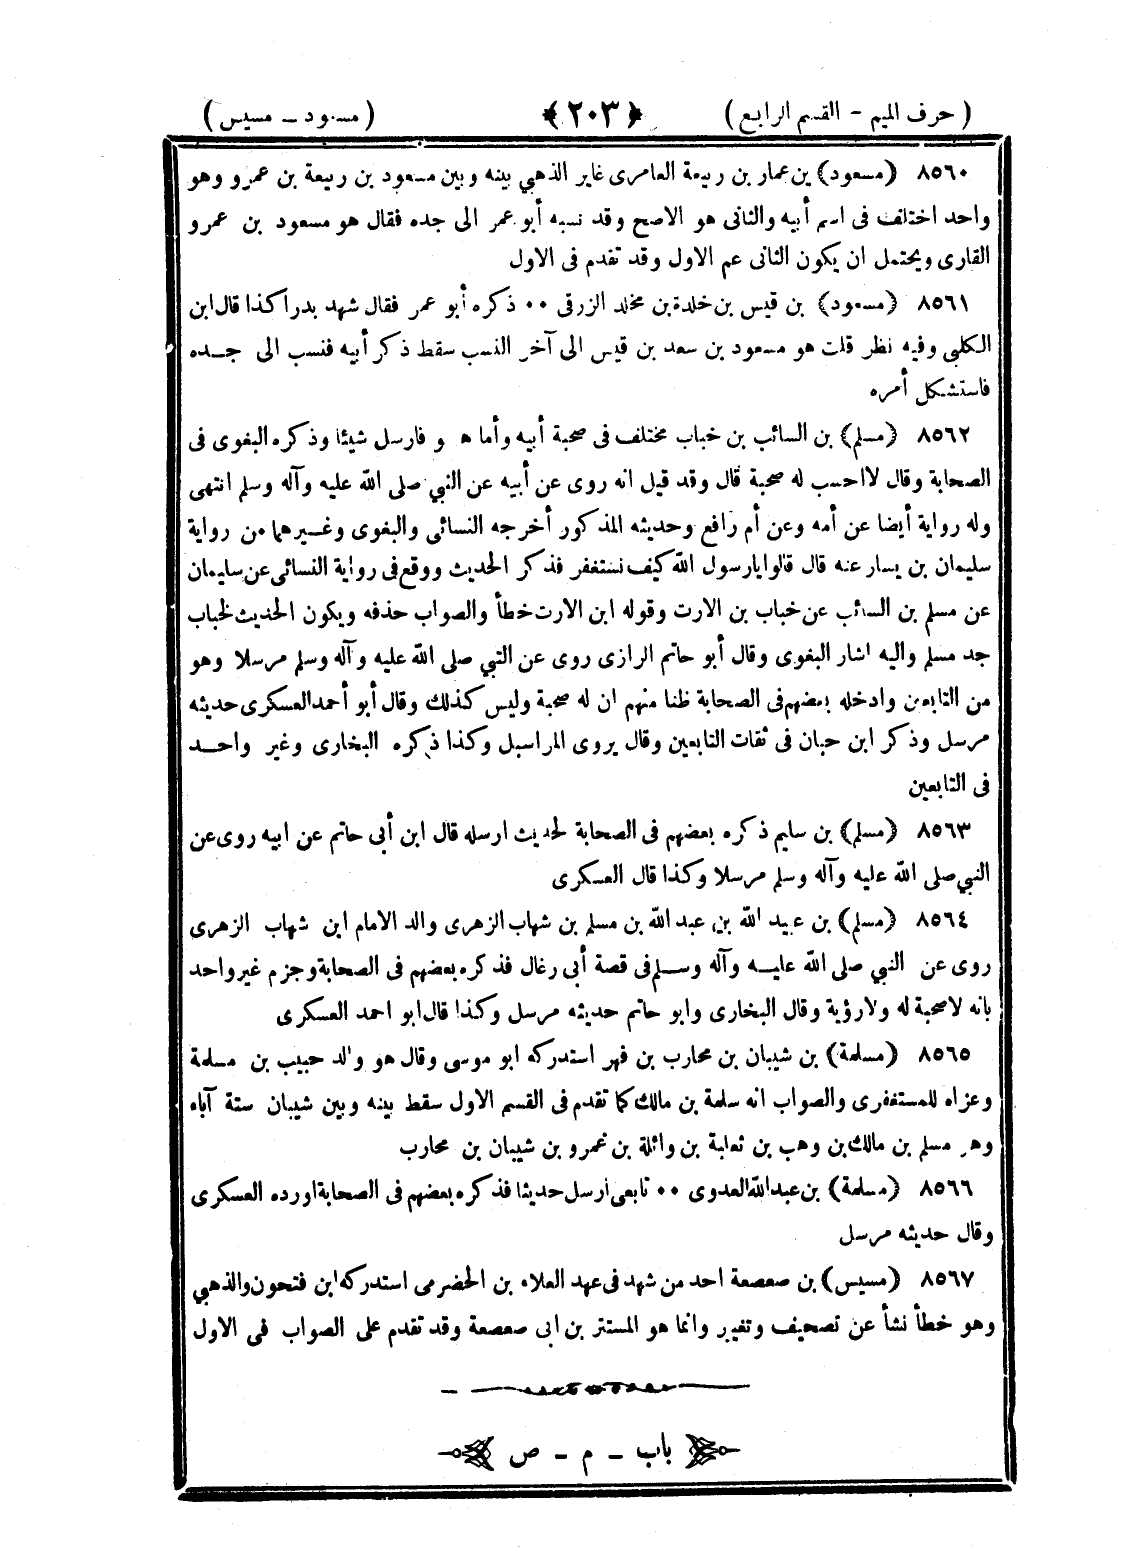 ( حرف الميم - القسم الرابع ) ﴿ ٢٠٣ ﴾ ( مسعود - مسيس )
٨٥٦٠ (مسعود) بن عمار بن ربيعة العامرى غاير الذهبي بينه وبين مسعود بن ربيعة بن عمرو وهو
واحد اختلف فى اسم أبيه والثانى هو الاصح وقد نسبه أبو عمر الى جده فقال هو مسعود بن عمرو
القارى ويحتمل ان يكون الثانى عم الاول وقد تقدم فى الاول
٨٥٦١ (مسعود) بن قيس بن خلدة بن مخلد الزرقى ٠٠ ذكره أبو عمر فقال شهد بدرا كذا قال ابن
الكلبي وفيه نظر قلت هو مسعود بن سعد بن قيس الى آخر النسب سقط ذكر أبيه فنسب الى جـده
فاستشكل أمره
٨٥٦٢ (مسلم) بن السائب بن خباب مختلف فى صحبة أبيه وأما هو فارسل شيئا وذكره البغوى فى
الصحابة وقال لا احسب له صحبة قال وقد قيل انه روى عن أبيه عن النبي صلى الله عليه وآله وسلم انتهى
وله رواية أيضا عن أمه وعن أم رافع وحديثه المذكور أخرجه النسائى والبغوى وغـيرهما من رواية
سليمان بن يسار عنه قال قالوا يارسول الله كيف نستغفر فذكر الحديث ووقع فى رواية النسائى عن سليمان
عن مسلم بن السائب عن خباب بن الارت وقوله ابن الارت خطأ والصواب حذفه ويكون الحديث لخباب
جد مسلم واليه اشار البغوى وقال أبو حاتم الرازى روى عن النبي صلى الله عليه وآله وسلم مرسلا وهو
من التابعين وادخله بعضهم فى الصحابة ظنا منهم ان له صحبة وليس كذلك وقال أبو أحمد العسكرى حديثه
مرسل وذكر ابن حبان فى ثقات التابعين وقال يروى المراسيل وكذا ذكره البخارى وغير واحـد
فى التابعين
٨٥٦٣ (مسلم) بن سليم ذكره بعضهم فى الصحابة لحديث ارسله قال ابن أبى حاتم عن ابيه روى عن
النبي صلى الله عليه وآله وسلم مرسلا وكذا قال العسكرى
٨٥٦٤ (مسلم) بن عبيد الله بن عبد الله بن مسلم بن شهاب الزهرى والد الامام ابن شهاب الزهرى
روى عن النبي صلى الله عليـه وآله وسـلم فى قصة أبى رغال فذكره بعضهم فى الصحابة وجزم غير واحد
بانه لاصحبة له ولا رؤية وقال البخارى وابو حاتم حديثه مرسل وكذا قال ابو احمد العسكرى
٨٥٦٥ (مسلمة) بن شيبان بن محارب بن فهر استدركه ابو موسى وقال هو والد حبيب بن مسلمة
وعزاه للمستغفرى والصواب انه سلمة بن مالك كما تقدم فى القسم الاول سقط بينه وبين شيبان ستة آباء
وهو مسلم بن مالك بن وهب بن ثعلبة بن وائلة بن عمرو بن شيبان بن محارب
٨٥٦٦ (مسلمة) بن عبدالله العدوى ٠٠ تابعى ارسل حديثا فذكره بعضهم فى الصحابة اورده العسكرى
وقال حديثه مرسل
٨٥٦٧ (مسيس) بن صعصعة احد من شهد فى عهد العلاء بن الحضرمى استدركه ابن فتحون والذهبي
وهو خطأ نشأ عن تصحيف وتغيير وانما هو المستتر بن ابى صعصعة وقد تقدم على الصواب فى الاول
باب - م - ص